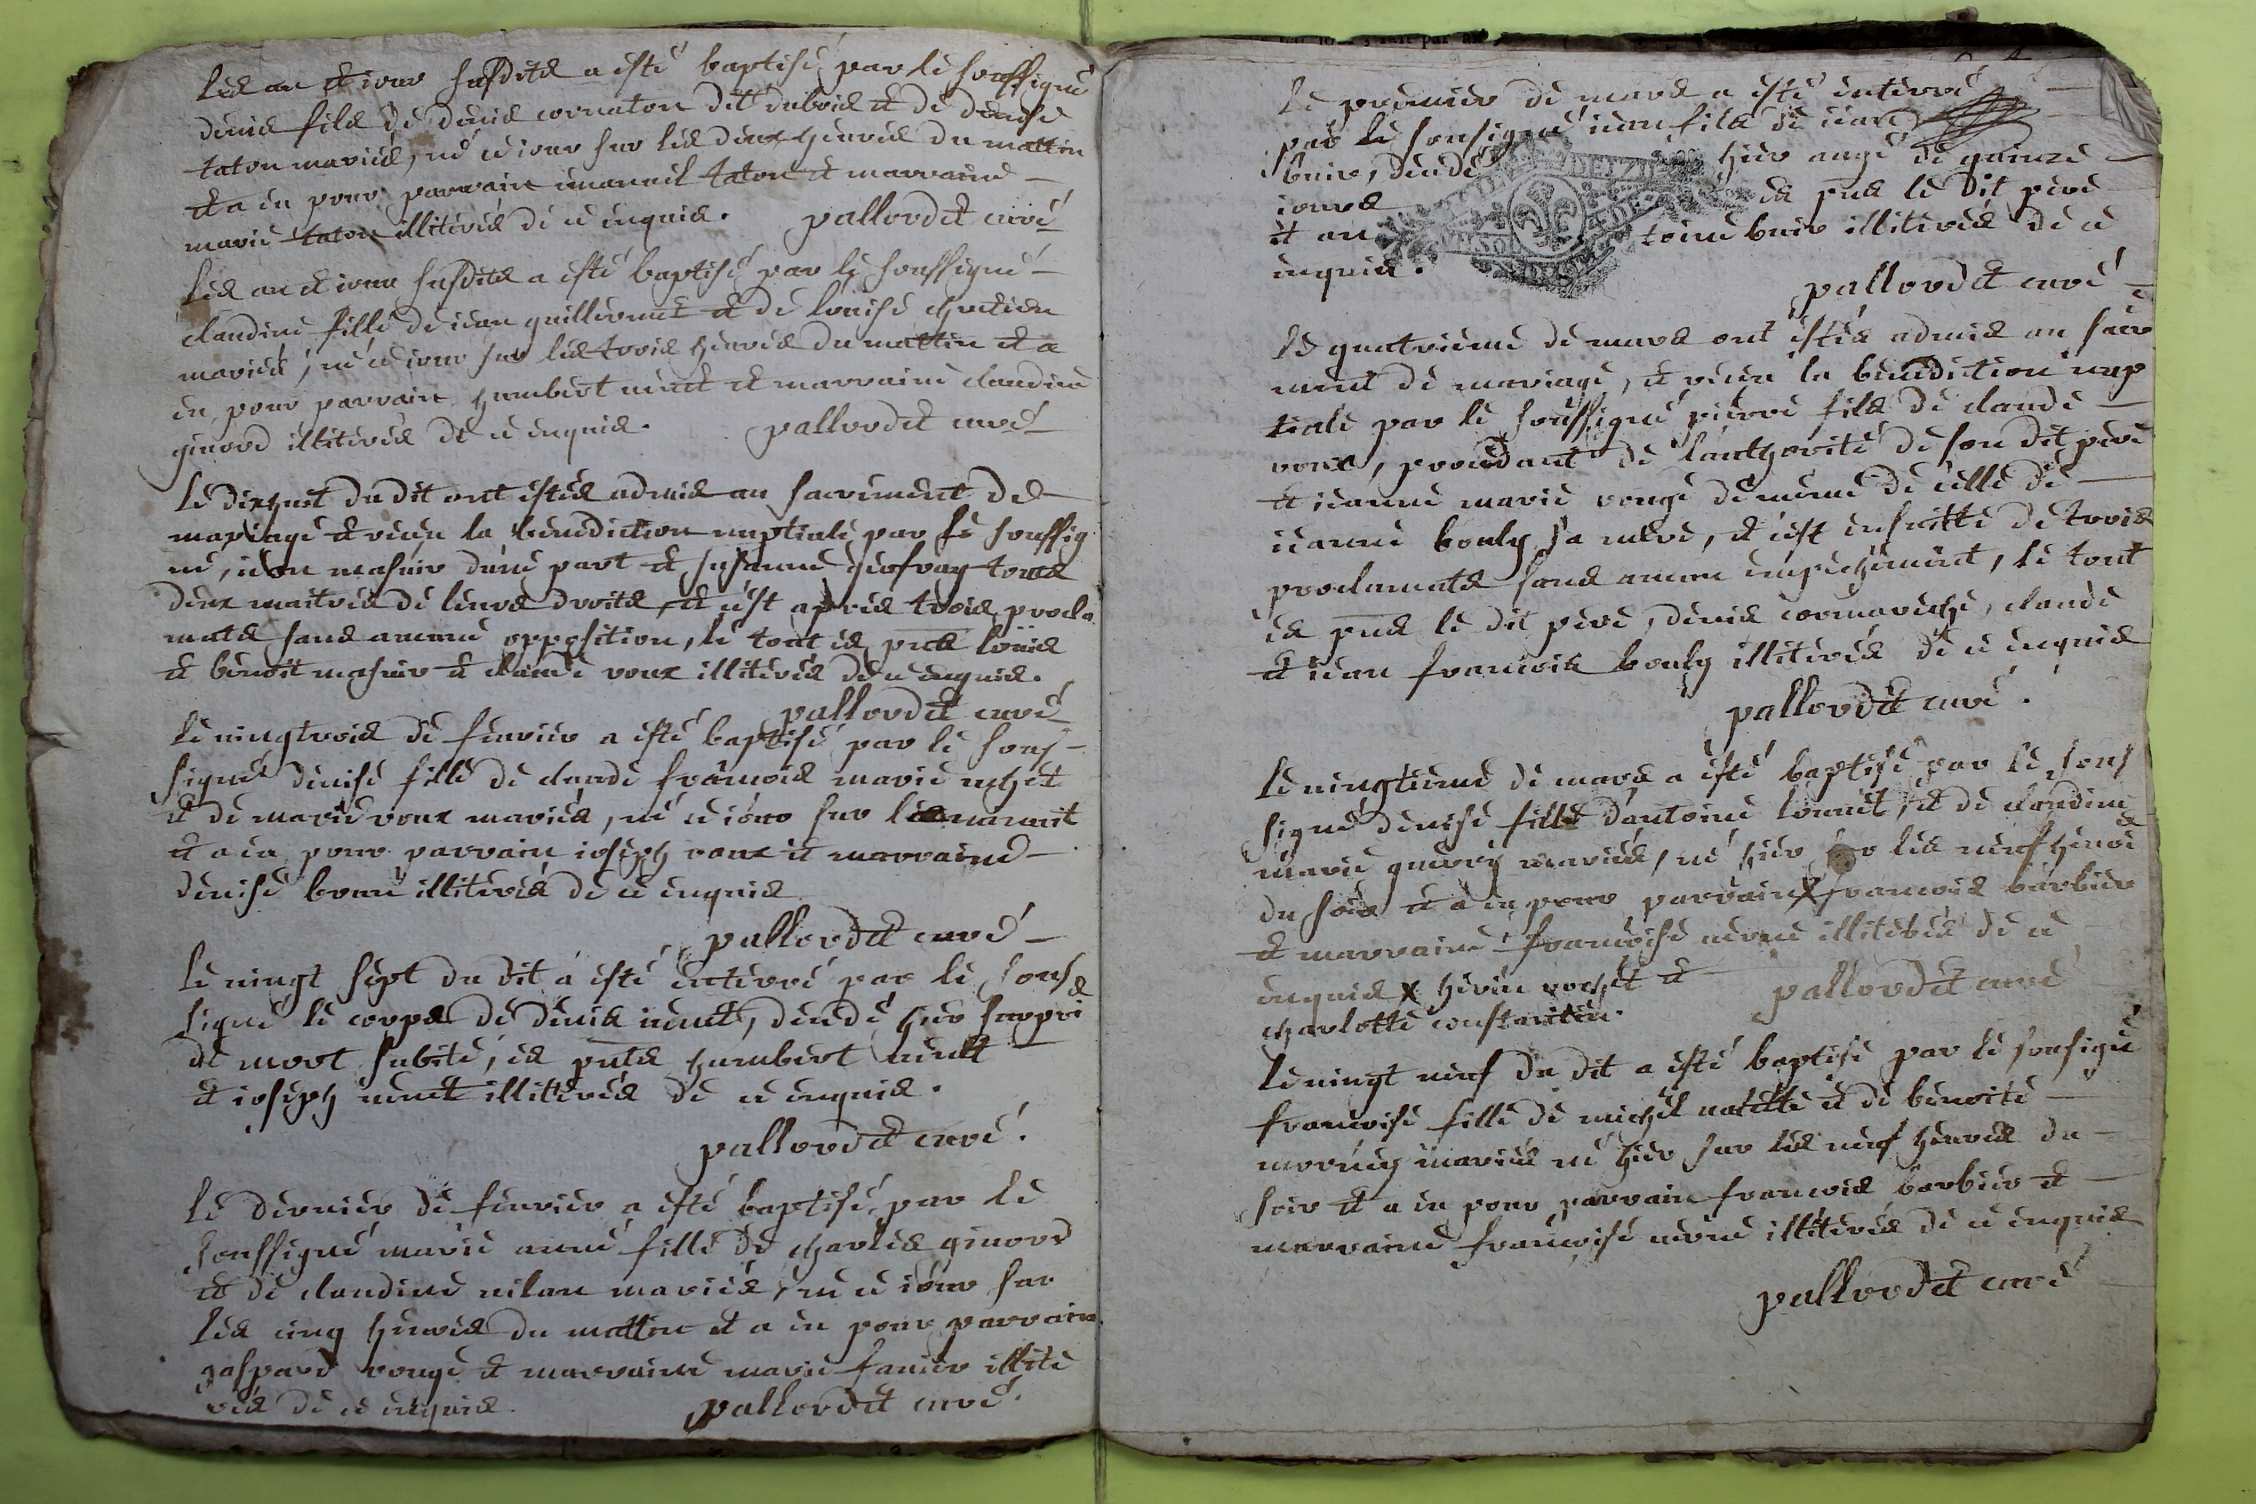 les an et iour susdits a esté baptisé par le soussigné
denis fils de denis cornaton dit dubois et de denise
taton mariés, né ce iour sur les deux heures du mattin
et a eu pour parrain emanuel taton et marraine
marie taton illiterés de ce enquis. pallordet curé
les an et iour susdits a esté baptisé par le soussigné
claudine fille de iean guillermet et de louise chretien
mariés, né ce iour sur les trois heures du mattin et a
eu pour parrain humbert et marraine claudine
ginord illiterés de ce enquis. pallordet curé
le dixhuit du dit ont estés admis au sacrement de
mariage et receu la benediction nuptiale par le soussig
né, iean masuir d'une part et susanne geofray tous
deux maitres de leurs droits, et c'est apres trois procla
mats sans aucune opposition, le tout es pnts louis
et benoit masuir et claude roux illiterés de ce enquis.
pallordet curé
le vingtrois de fevrier a esté baptisé par le sous
signé denise fille de claude francois marie
et de marie roux mariés, né ce iour sur les minuit
et a eu pour parrain ioseph roux et marraine
denise illiterés de ce enquis
pallordet curé
le vingt sept du dit a esté enterré par le sous
signé le corps de denis, decedé hier surpris
de mort subite, es pnts humbert
et ioseph illiterés de ce enquis.
pallordet curé.
le dernier de fevrier a esté baptisé, par le
soussigné marie anne fille de charles ginord
et de claudine mariés, né ce iour sur
les cinq heures du mattin et a eu pour parrain
gaspard rouge et marraine marie illite
rés de ce enquis. pallordet curé.
le premier de mars a esté enterré
par le sousigné iean fils de iean
buir, decedé hier augé de quinze
iours es pnts le dit pere
et an toine buir illiterés de ce
enquis.
pallordet curé
le quatrieme de mars ont estés admis au sacre
ment de mariage, et receu la benediction nup
tiale par le soussigné pierre fils de claude
roux, procedant de l'authorité de son dit pere
et ieanne marie rouge de meme de celle de
ieanne bouly sa mere, et c'est ensuitte de trois
proclamats sans aucun empechement, le tout
es pnts le dit pere, denis cormareche, claude
et iean francois bouly illiterés de ce enquis
pallordet curé.
le vingtieme de mars a esté baptisé par le sous
signé denise fille d'antoine, et de claudine
marie mariés, né hier sur les neuf heures
du soir et a eu pour parrain X francois barbier
et marraine francoise illiterés de ce
enquis X rochet et pallordet curé
charlotte constantin.
le vingt neuf du dit a esté baptisé par le sousigné
francoise fille de michel et de benoite
mariés né hier sur les neuf heures du
soir et a eu pour parrain francois barbier et
marraine francoise illiterés de ce enquis
pallordet curé